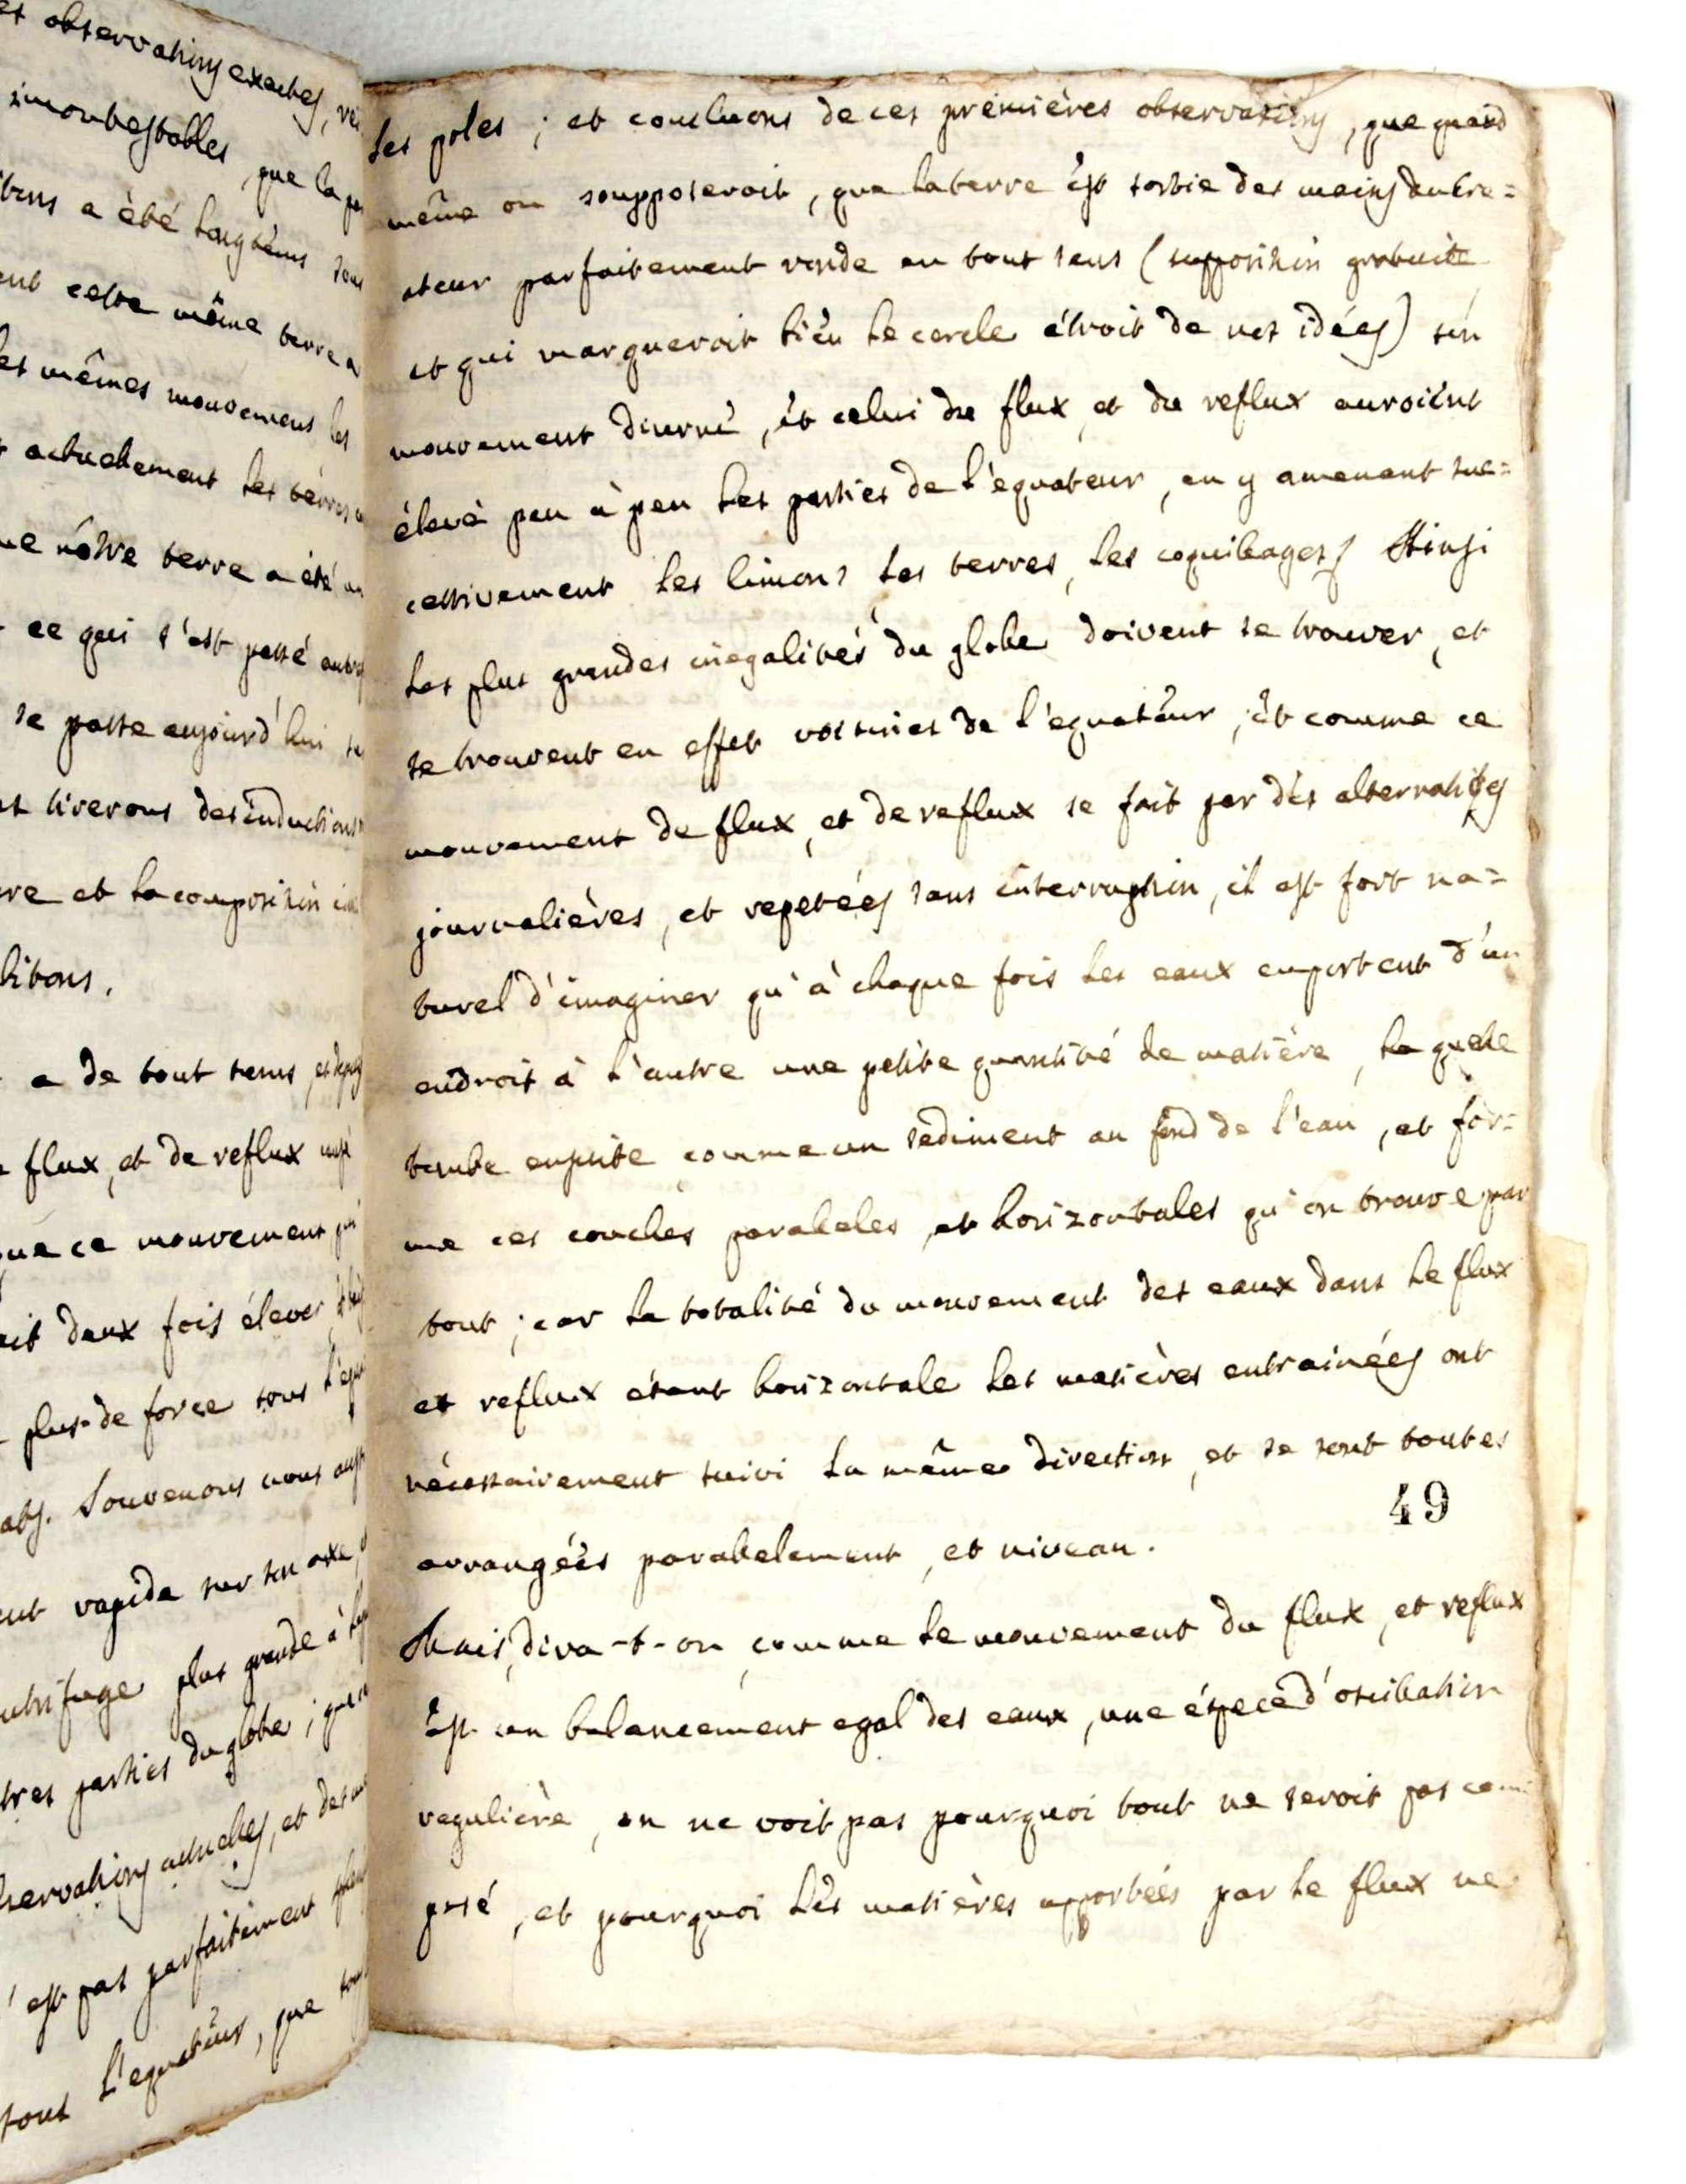 et observations exactes,
incontestables, que la
a été longtems sous
cette même terre a
les mêmes mouvemens les
actuelement les terres
que nôtre terre a été
ce qui s'est passé
se passe aujourd'hui
tirerons des inductions
et la composition
bitons.
a de tout tems
flux, et de reflux
que ce mouvement
deux fois élever
plus de force sous
Souvenons nous
rapide sur son axe,
plus grande à
parties du globe ;
actuelles, et
est pas parfaitement
L'equateur, que
les poles ; et concluons de ces prémières observations, que quand
même on soupposeroit, que la terre ést sortie des mains du cre=
ateur parfaitement ronde en tout sens (supposition gratuite
et qui marqueroit bién le cercle étroit de nos idées) són
mouvement diurne, ét celui du flux, et du reflux auroiént
élevé peu à peu les parties de l'équateur, en y amenant suc=
cessivement les limons les terres, les coquilages. Ainsi
les plus grandes inegalités du globe doivent se trouver, et
se trouvent en effet voisines de l'equatéur, ét comme ce
mouvement de flux, et de reflux se fait par dés alternatives
journalières, et repetées sans interruption, il est fort na=
turel d'imaginer qu'à chaque fois les eaux emportent d'un
endroit à l'autre une petite quantité de matière, la quele
tombe ensuite comme un sediment au fond de l'eau, et for=
me ces couches paraleles, et horizontales qu'on trouve par
tout ; car la totalité du mouvement des eaux dans le flux
et reflux étant horizontale les matières entrainées ont
nécessairement suivi la même direction, et se sont toutes
49
arrangées paralelement, et niveau.
Mais, dira-t-on, comme le mouvement du flux, et reflux
ést un balancement egal des eaux, une éspece d'oscilation
regulière, on ne voit pas pourquoi tout ne seroit pas com
pensé, et pourquoi lés matières apportées par le flux ne